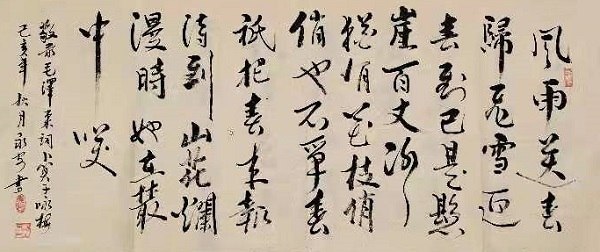 風雨送春
歸飛雪迎
春到已是懸
崖百丈冰
猶有花枝俏
俏也不爭春
祇把春來報
待到山花爛
漫時她在叢
中咲
敬录毛澤東詞卜算子咏梅
己亥年秋月